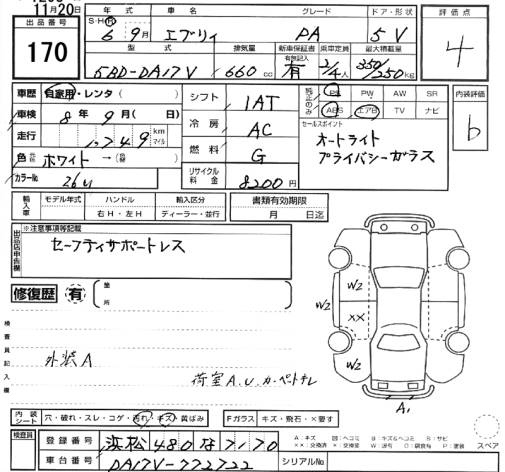 11月20日
出品番号 170
年式 S・H・R 6年 9月
車名 エブリィ
グレード PA
ドア・形状 5V
評価点 4
型式 5BD-DA17V
排気量 660cc
新車保証書 有無記入 有
乗車定員 2/4人
最大積載量 350/250kg
車歴 自家用・レンタ( )
シフト 1AT
純正のみ PS PW AW SR
ABS エアB TV ナビ
内装評価 b
車検 8年9月( 日)
冷房 AC
セールスポイント
オートライト
プライバシーガラス
走行 1,749 km マイル
燃料 G
色 ホワイト →色替( )
カラーNo. 26U
リサイクル料金 8200円
輸入車 モデル年式 ハンドル 右H・左H 輸入区分 ディーラー・並行
書類有効期限 月 日迄
出品店申告欄 ※注意事項等記載
セーフティサポートレス
修復歴 有 箇所
検査員記入欄
外装A
荷室A.U.カーペットナシ
W2
W2 W2
××
W2
A1
内装シート 穴・破れ・スレ・コゲ・汚れ・キズ・黄ばみ
Fガラス キズ・飛石・×要す
検査員
登録番号 浜松480な7170
A:キズ
スペア
車台番号 DA17V-772722
シリアルNo.